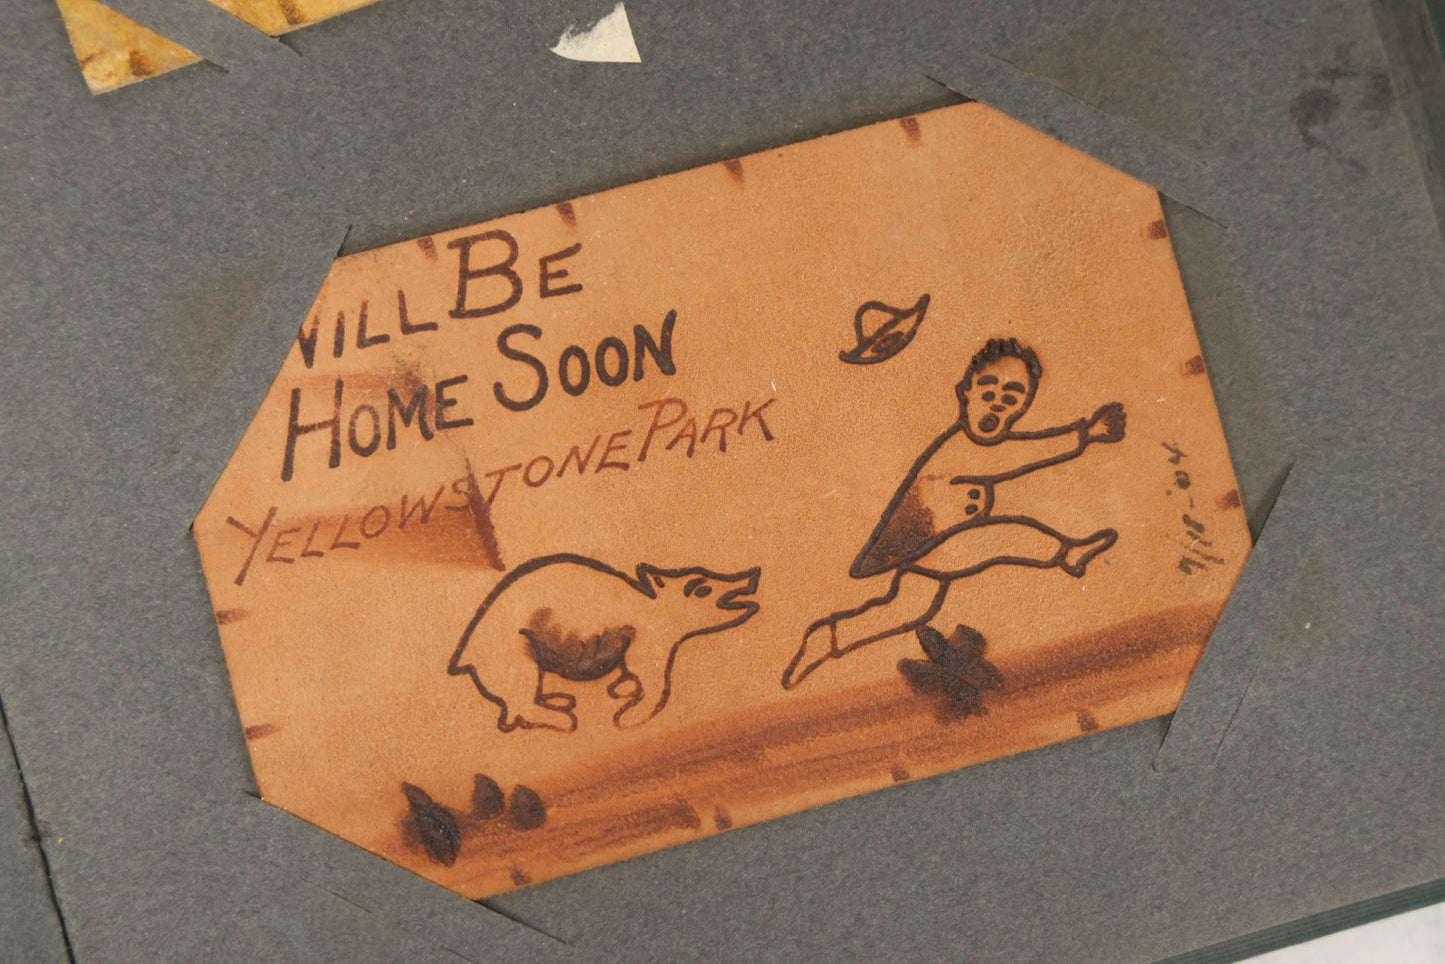 WILL BE
HOME SOON
YELLOWSTONE PARK